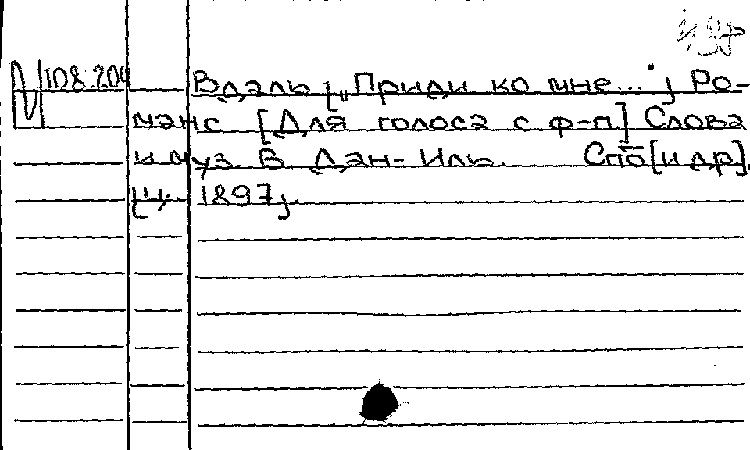 108.204
Вдаль [„Приди ко мне..."] Ро-
манс [Для голоса с ф-п.] Слова
и муз. В. Дан-Иль. Спб [и др].
[ц. 1897].